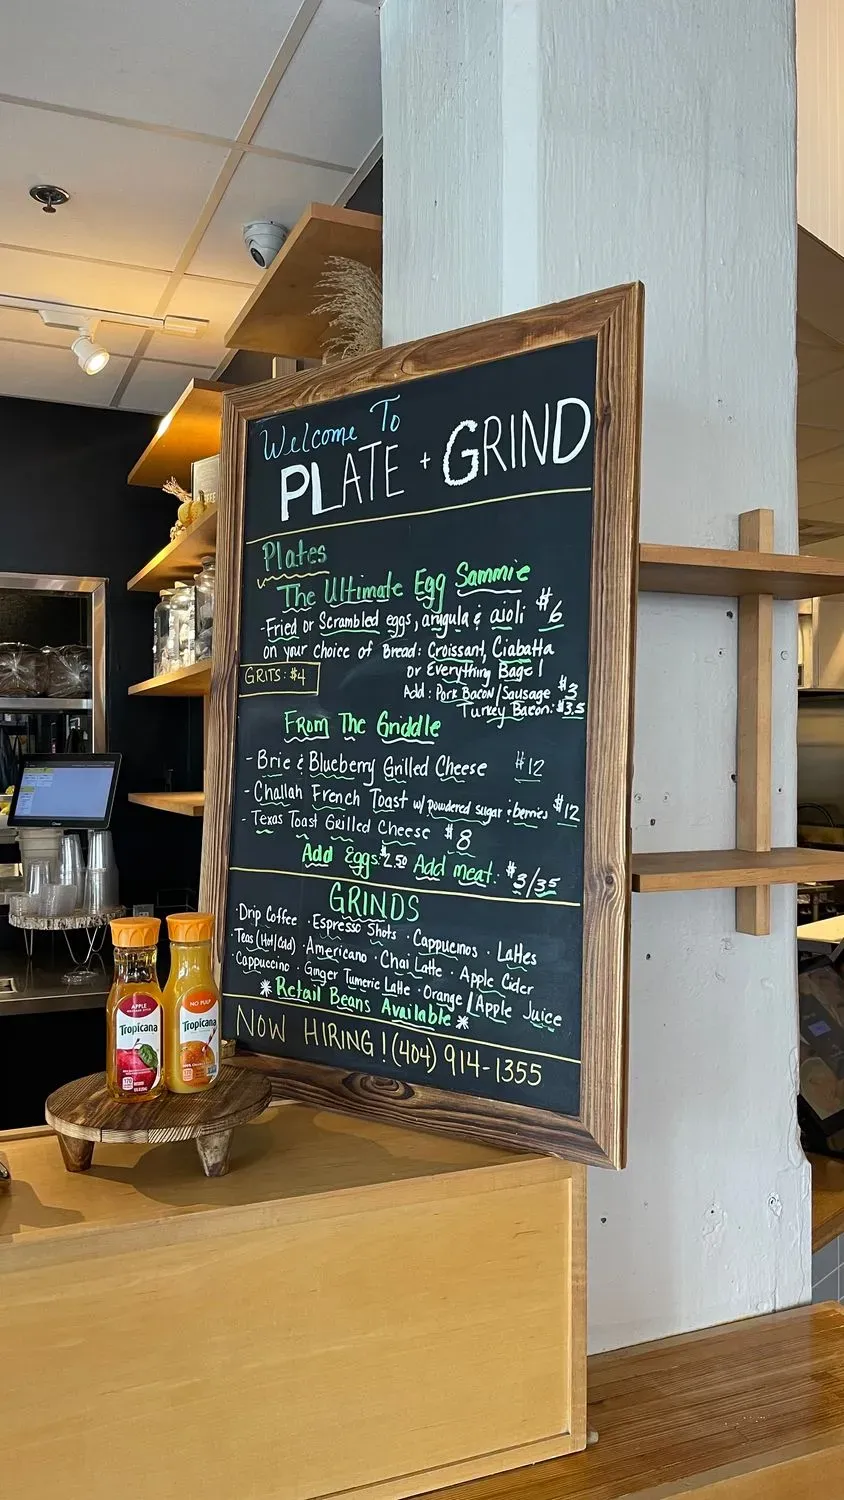 Welcome To
PLATE + GRIND
Plates
The Ultimate Egg Sammie
-Fried or Scrambled eggs, arugula & aioli $6
on your choice of Bread: Croissant, Ciabatta
or Everything Bagel
GRITS: $4
Add: Pork Bacon/Sausage $3
Turkey Bacon: $3.5
From The Griddle
- Brie & Blueberry Grilled Cheese $12
- Challah French Toast w/ powdered sugar & berries $12
- Texas Toast Grilled Cheese $8
Add Eggs: $2.50 Add meat: $3/3.5
GRINDS
·Drip Coffee ·Espresso Shots ·Cappucinos ·Lattes
·Teas (Hot/Cold) ·Americano ·Chai Latte ·Apple Cider
·Cappuccino ·Ginger Tumeric Latte ·Orange/Apple Juice
*Retail Beans Available*
NOW HIRING! (404) 914-1355
APPLE
Tropicana
NO PULP
Tropicana